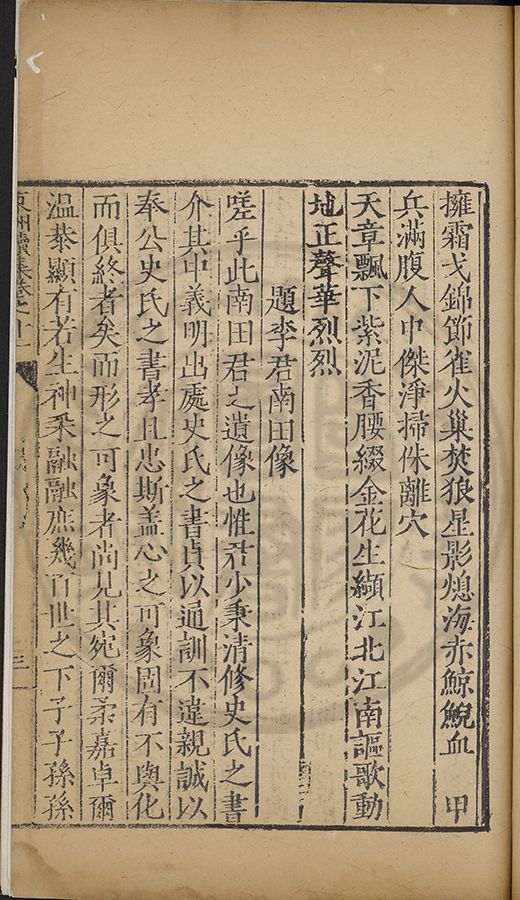 擁霜戈錦節雀火巢焚狼星影熄海赤鯨鯢血　甲
兵滿腹人中傑淨掃侏離穴
天章飄下紫泥香腰綴金花生纈江北江南謳歌動
地正聲華烈烈
題李君南田像
嗟乎此南田君之遺像也惟君少秉清修史氏之書
介其中義明出處史氏之書貞以通訓不違親誠以
奉公史氏之書孝且忠斯盖心之可象固有不與化
而俱終者矣而形之可象者尚見其宛爾柔嘉卓爾
温恭顯有若生神采融融庶幾百世之下子子孫孫
東洲續集卷之十一
三